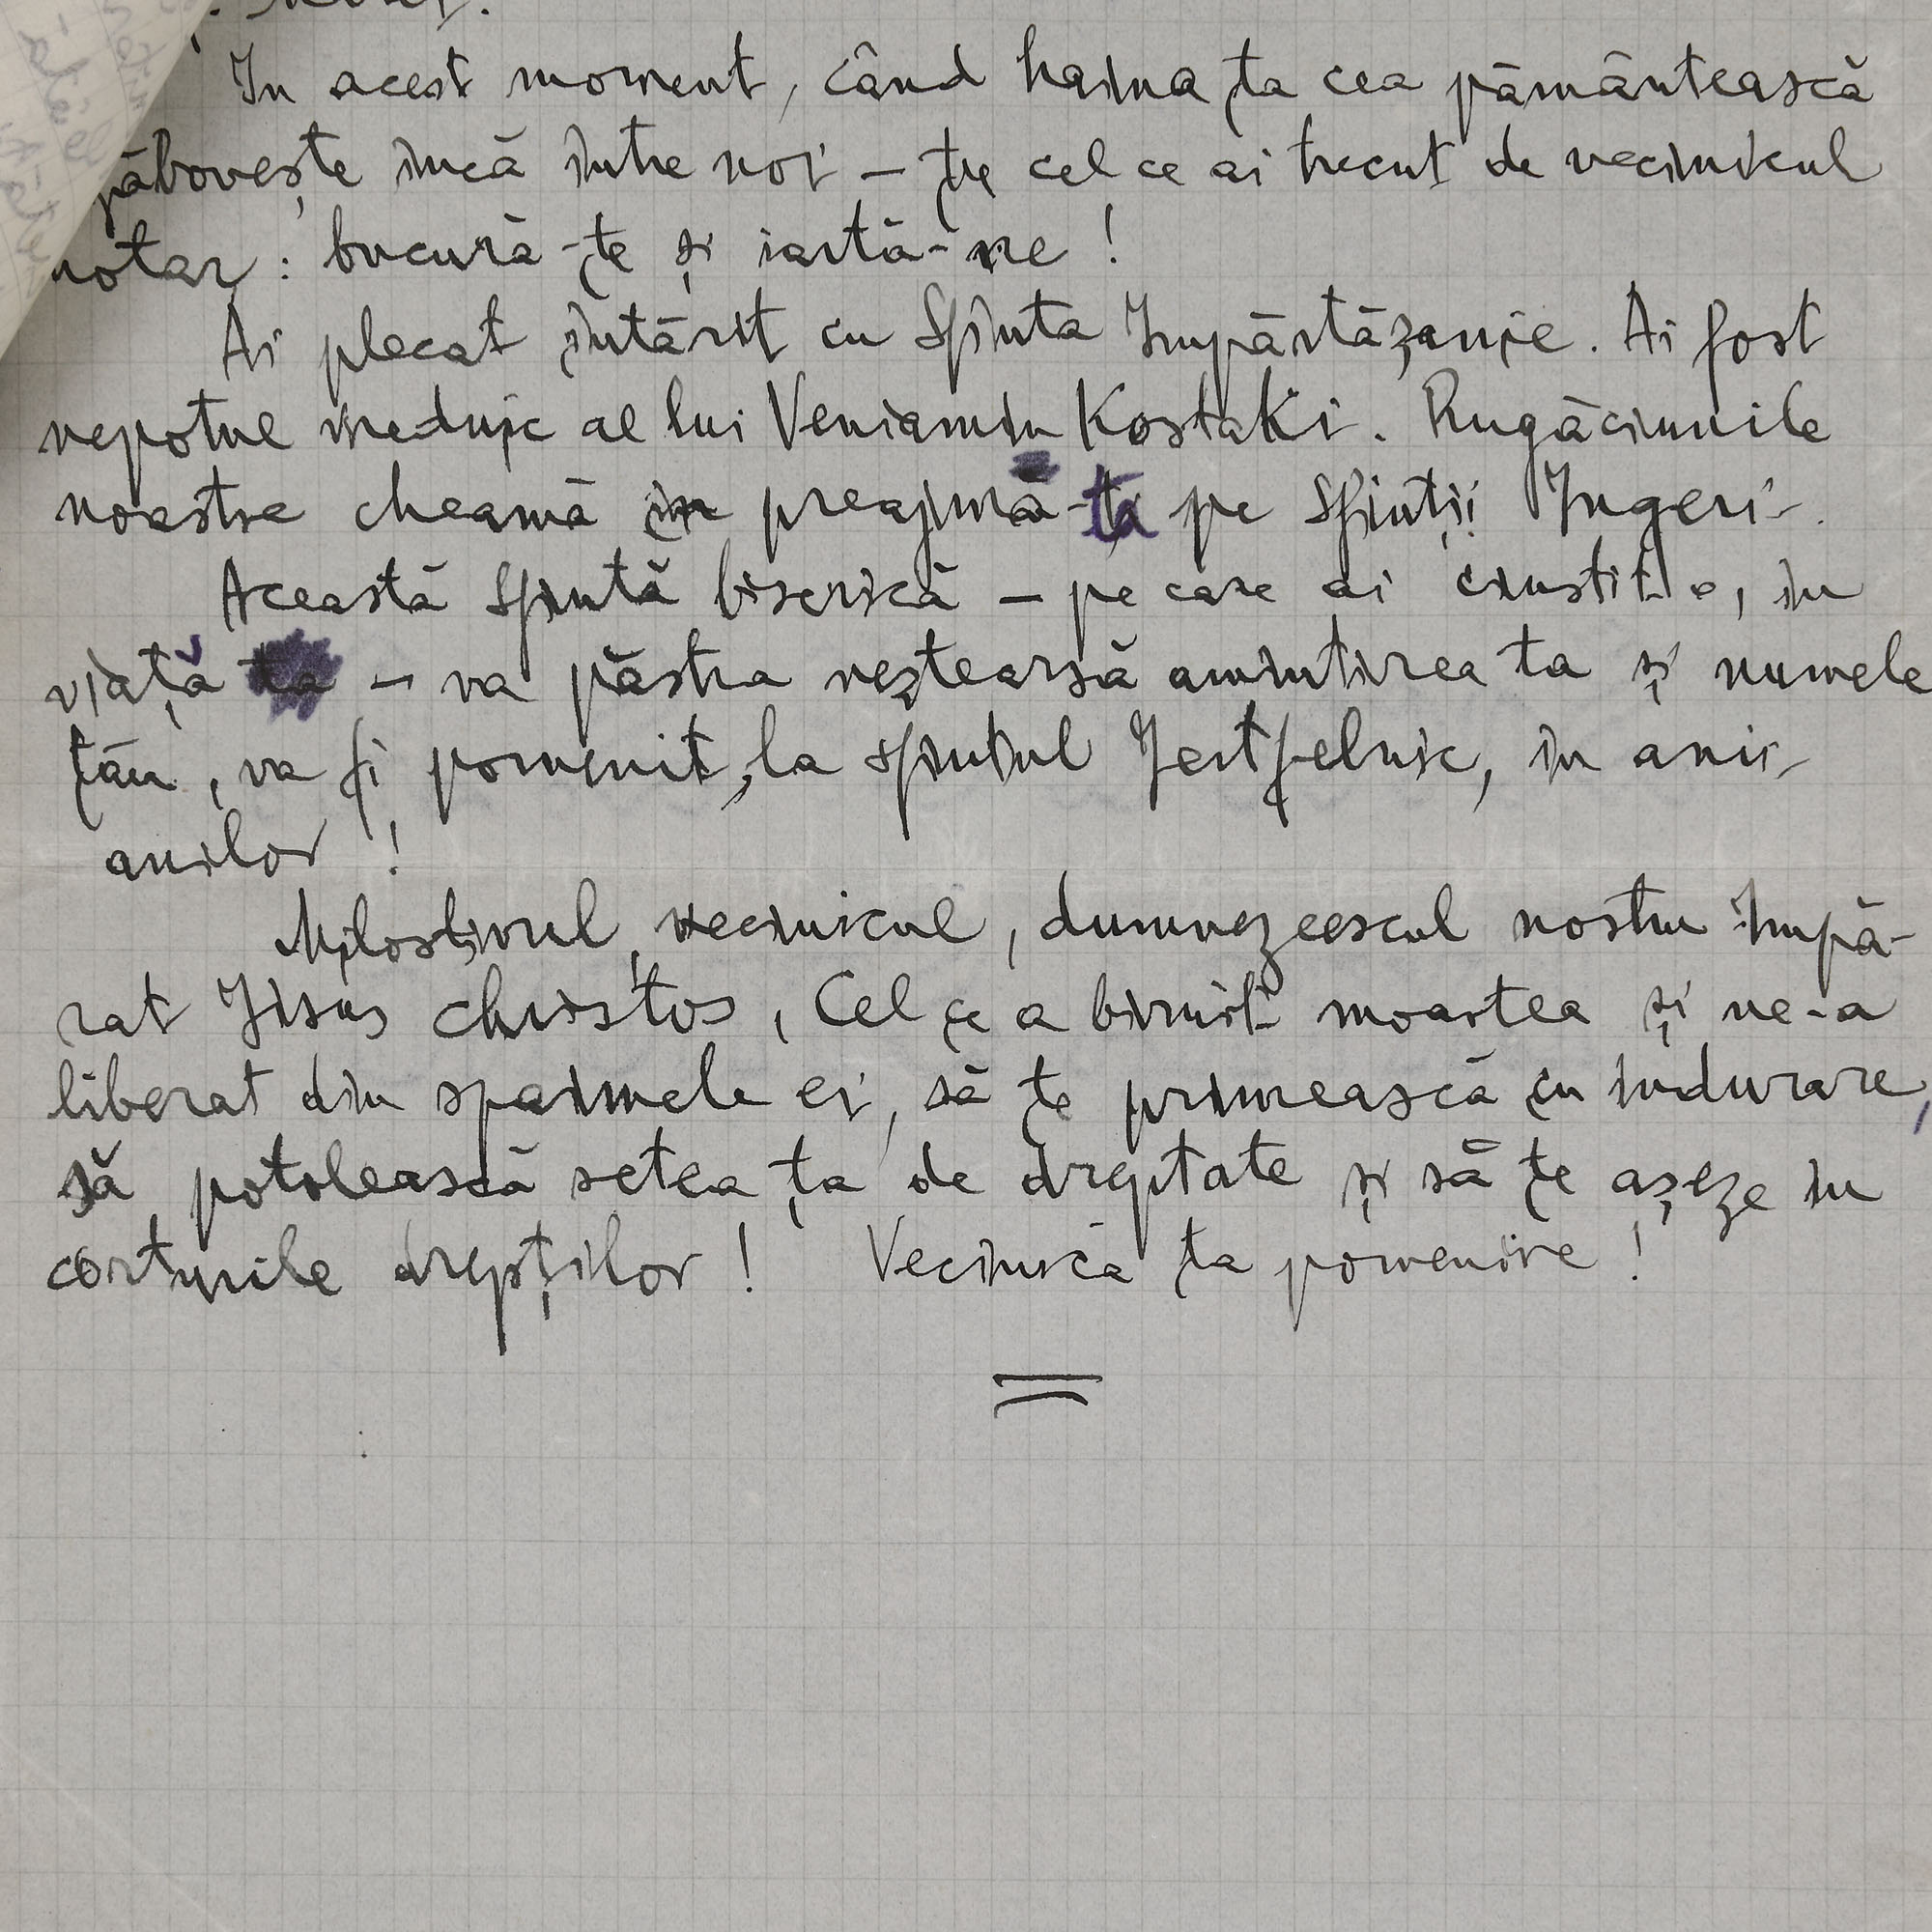 In acest moment, când haina ta cea pământească
zăbovește încă între noi – tu cel ce ai trecut de vecinicul
hotar: bucură-te și iartă-ne!
Ai plecat întărit cu Sfinta Impărtășanie. Ai fost
nepotul vrednic al lui Veniamin Kostaki. Rugăciunile
noastre cheamă în preajmă-ta pe Sfinții Ingeri.
Această Sfintă biserică – pe care ai cinstit-o, in
viață – va păstra neștearsă amintirea ta și numele
tău, va fi pomenit, la sfintul Jertfelnic, in anii
anilor!
Milostivul, vecinicul, dumnezeescul nostru Impă-
rat Iisus Christos, Cel ce a biruit moartea și ne-a
liberat din spaimele ei, să te primească cu indurare,
să potolească setea ta de dreptate și să te așeze in
corturile drepților! Vecinică ta pomenire!